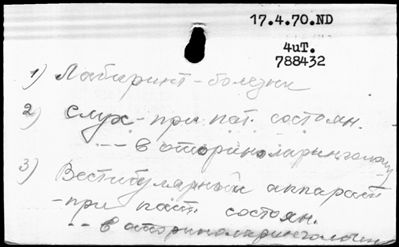 17.4.70.ND
4uT.
788432
1) Лабиринт - болезни
2) Слух - при пат. состоян.
--- в оториноларинголог
3) Вестибулярный аппарат
- при пат. состоян.
-- в оториноларингологии